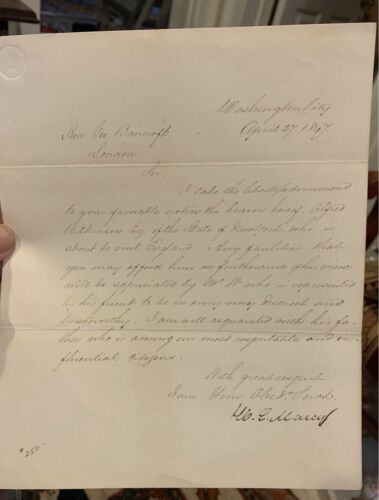 Washington City
April 27 1847.
Hon. Geo. Bancroft.
London
Sir,
I take the liberty to commend
to your favorable notice the bearer hereof Alfred
Wilkinson Esq of the State of New York, who is
about to visit England. Any facilities that
you may afford him in furtherance of his views
will be appreciated by Mr W. who is represented
by his friends to be in every way discreet and
trustworthy. I am well acquainted with his fa-
ther who is among our most respectable and in-
fluential citizens.
With great respect
I am Your Obedt. Servt.
W. L. Marcy
$250-